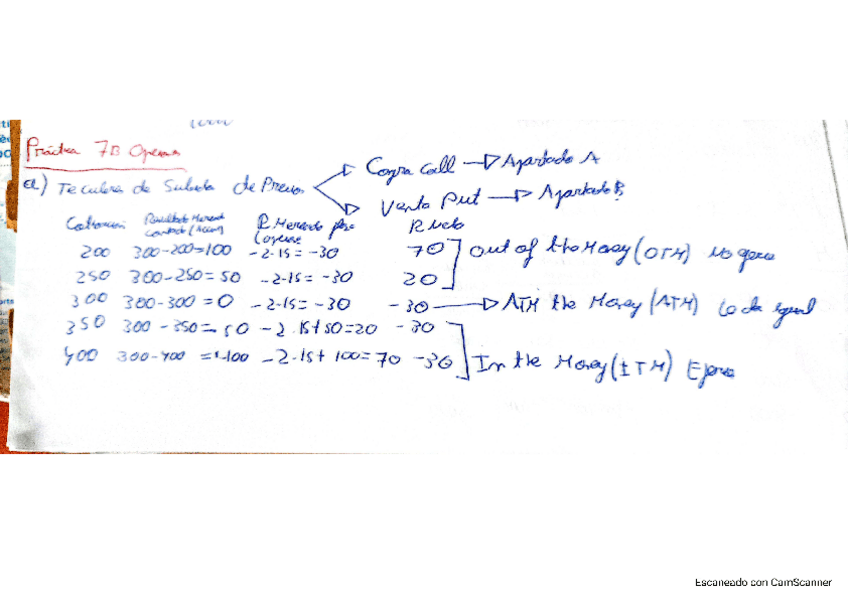 Práctica 7B Opciones
a) Te cubres de Subida de Precios
Compra Call → Apartado A
Venta Put → Apartado B
Cotización Resultado Mercado Contado (Acción) R. Mercado R Neto
200 300-200=100 -2·15= -30 70 Out of the Money (OTM) No ejerce
250 300-250= 50 -2·15= -30 20
300 300-300 =0 -2·15= -30 -30 → ATM the Money (ATM) Le da igual
350 300-350=-50 -2·15+50=20 -30
400 300-400 =-100 -2·15+ 100= 70 -30 In the Money (ITM) Ejerce
Escaneado con CamScanner